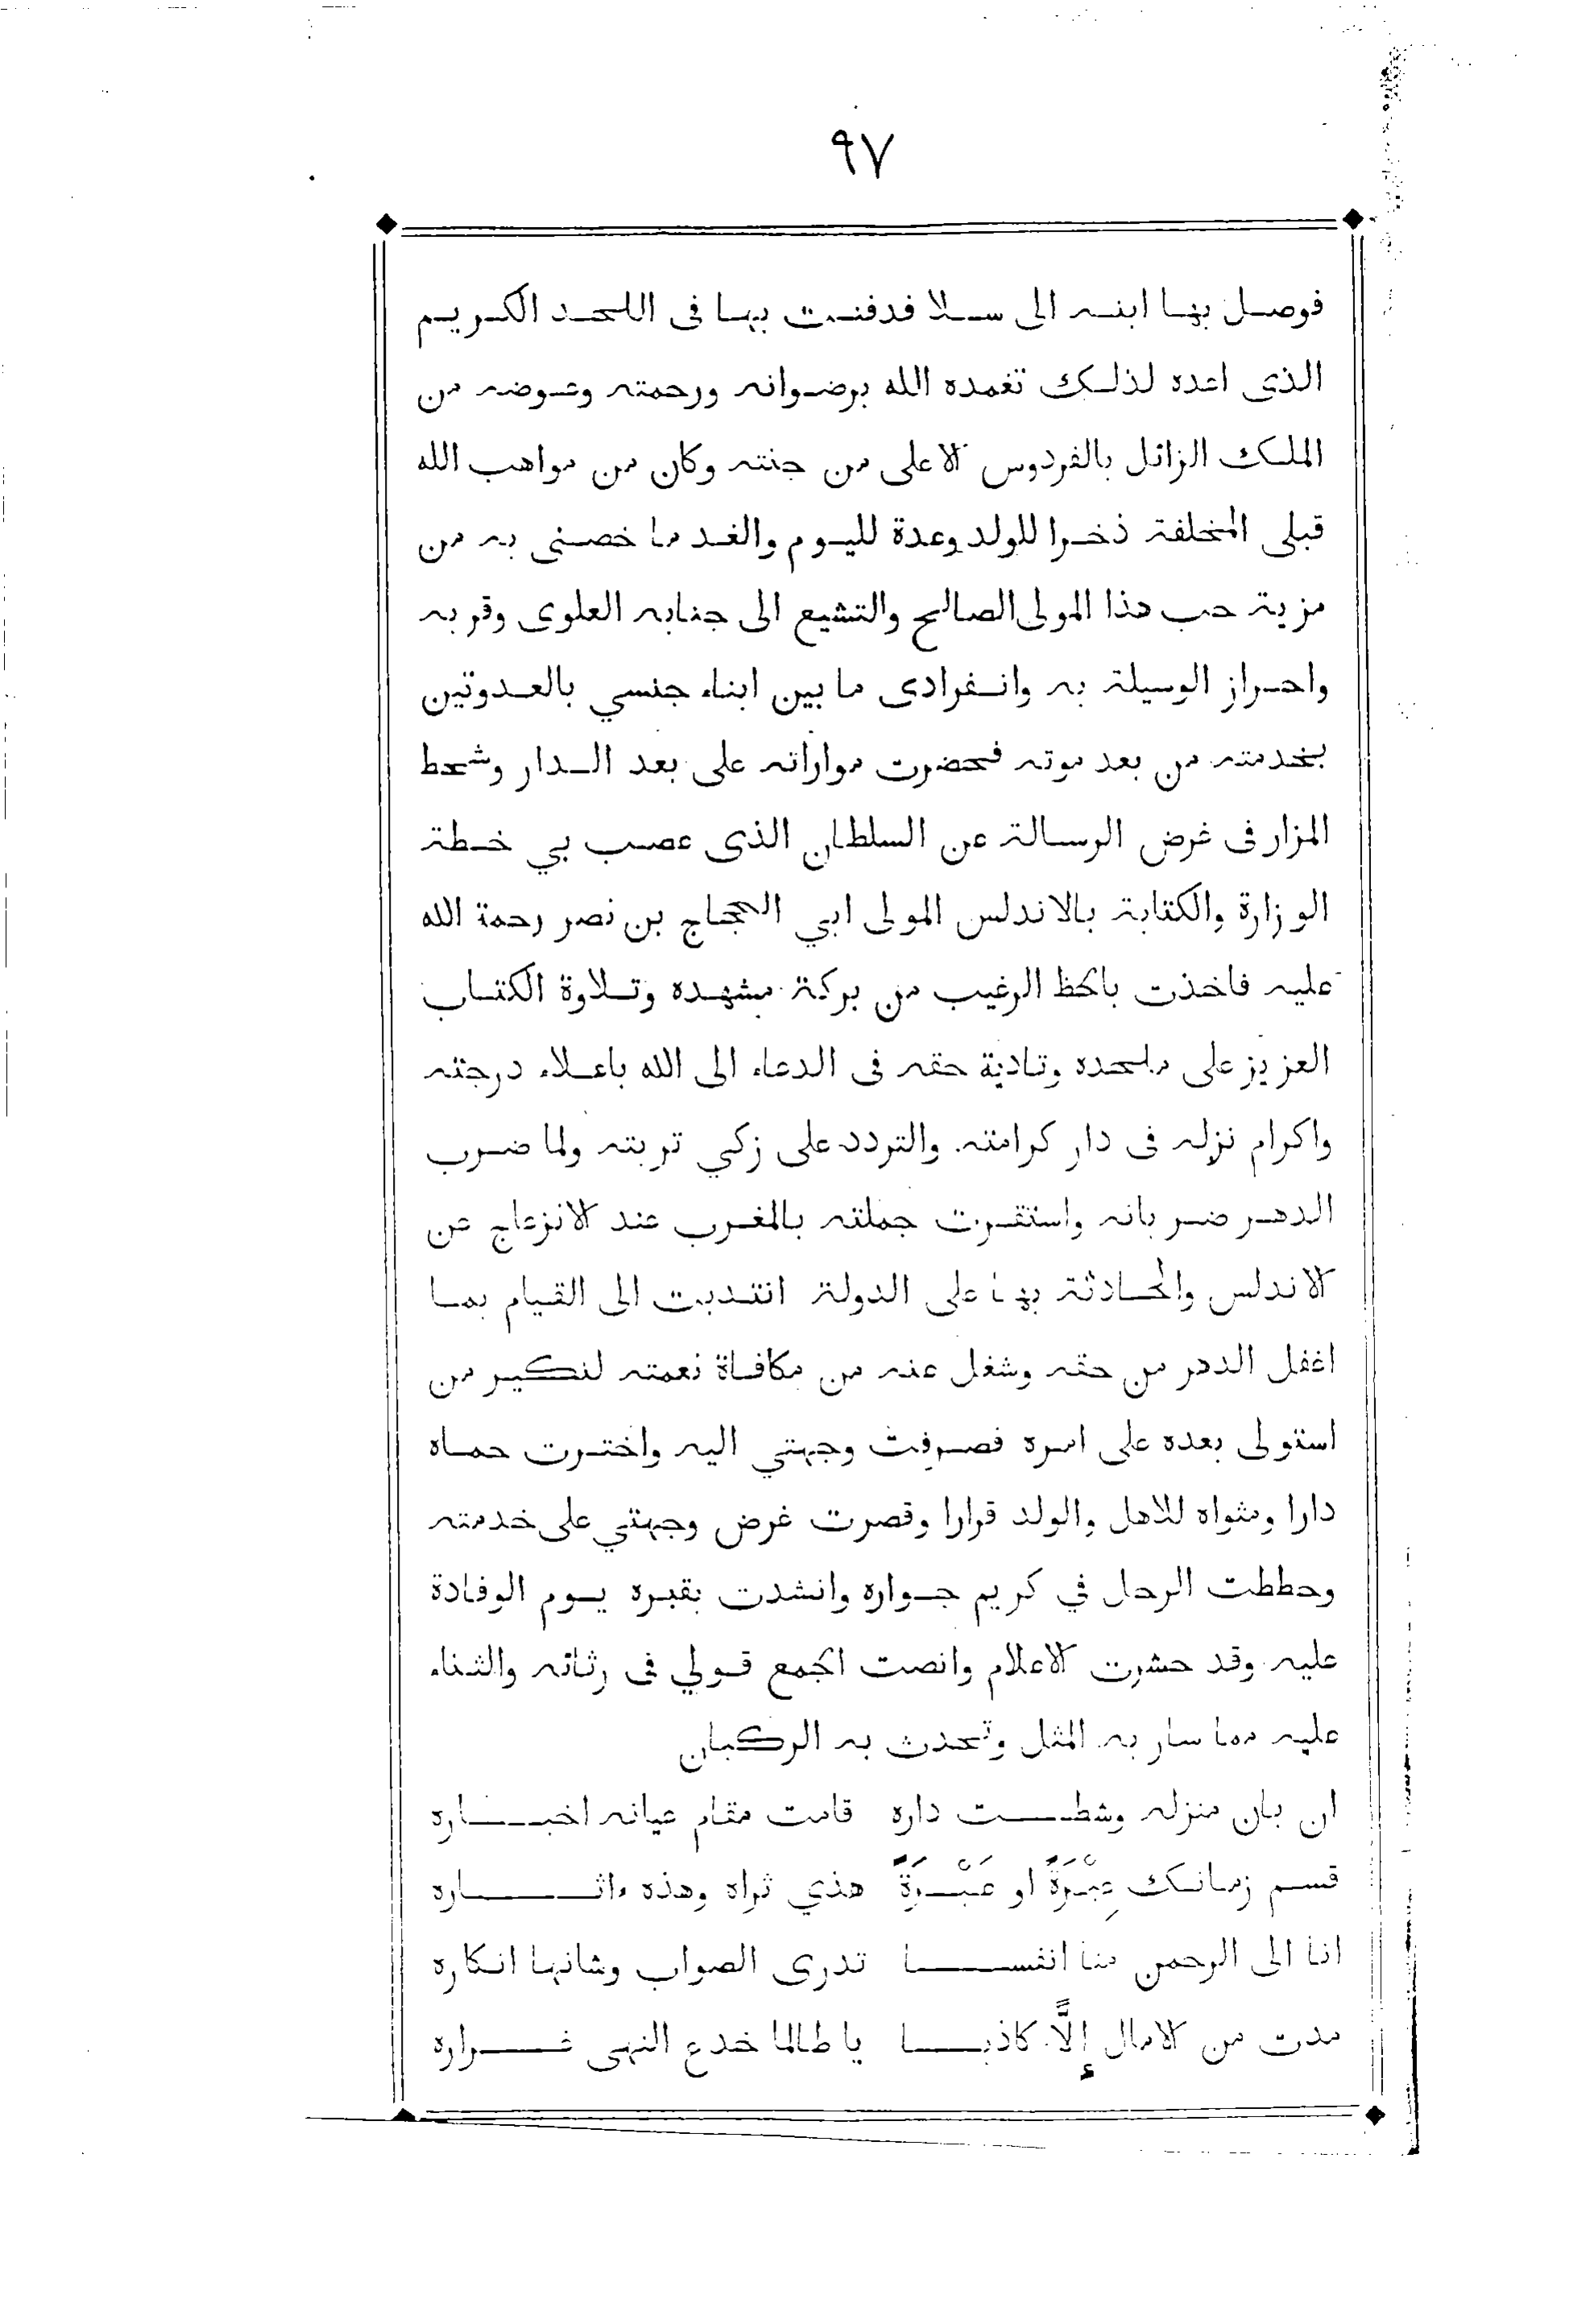 ٩٧
فوصل بها ابنه الى سلا فدفنت بها فى اللحد الكريم
الذى اعده لذلك تغمده الله برضوانه ورحمته وعوضه من
الملك الزائل بالفردوس الاعلى من جنته وكان من مواهب الله
قبلى المخلفة ذخرا للولد وعدة لليوم والغد ما خصنى به من
مزية حب هذا المولى الصالح والتشيع الى جنابه العلوى وقربه
واحراز الوسيلة به وانفرادى ما بين ابناء جنسي بالعدوتين
بخدمته من بعد موته فحضرت مواراته على بعد الدار وشحط
المزار فى غرض الرسالة عن السلطان الذى عصب بي خطة
الوزارة والكتابة بالاندلس المولى ابي الحجاج بن نصر رحمة الله
عليه فاخذت بالحظ الرغيب من بركة مشهده وتلاوة الكتاب
العزيز على ملحده وتادية حقه فى الدعاء الى الله باعلاء درجته
واكرام نزله فى دار كرامته والتردد على زكي تربته ولما ضرب
الدهر ضربانه واستقرت جملته بالمغرب عند الانزعاج عن
الاندلس والحادثة بها على الدولة انتدبت الى القيام بما
اغفل الدهر من حقه وشغل عنه من مكافاة نعمته لنكير من
استولى بعده على امره فصرفت وجهتي اليه واخترت حماه
دارا ومثواه للاهل والولد قرارا وقصرت غرض وجهتي على خدمته
وحططت الرحل في كريم جواره وانشدت بقبره يوم الوفادة
عليه وقد حشرت الاعلام وانصت الجمع قولي فى رثائه والثناء
عليه مما سار به المثل وتحدث به الركبان
ان بان منزله وشطت داره قامت مقام عيانه اخباره
قسم زمانك عِبْرَةً او عَبْرَةً هذي ثراه وهذه ءاثاره
انا الى الرحمن منا انفسا تدرى الصواب وشانها انكاره
مدت من الامال إلًّا كاذبا يا طالما خدع النهى غراره